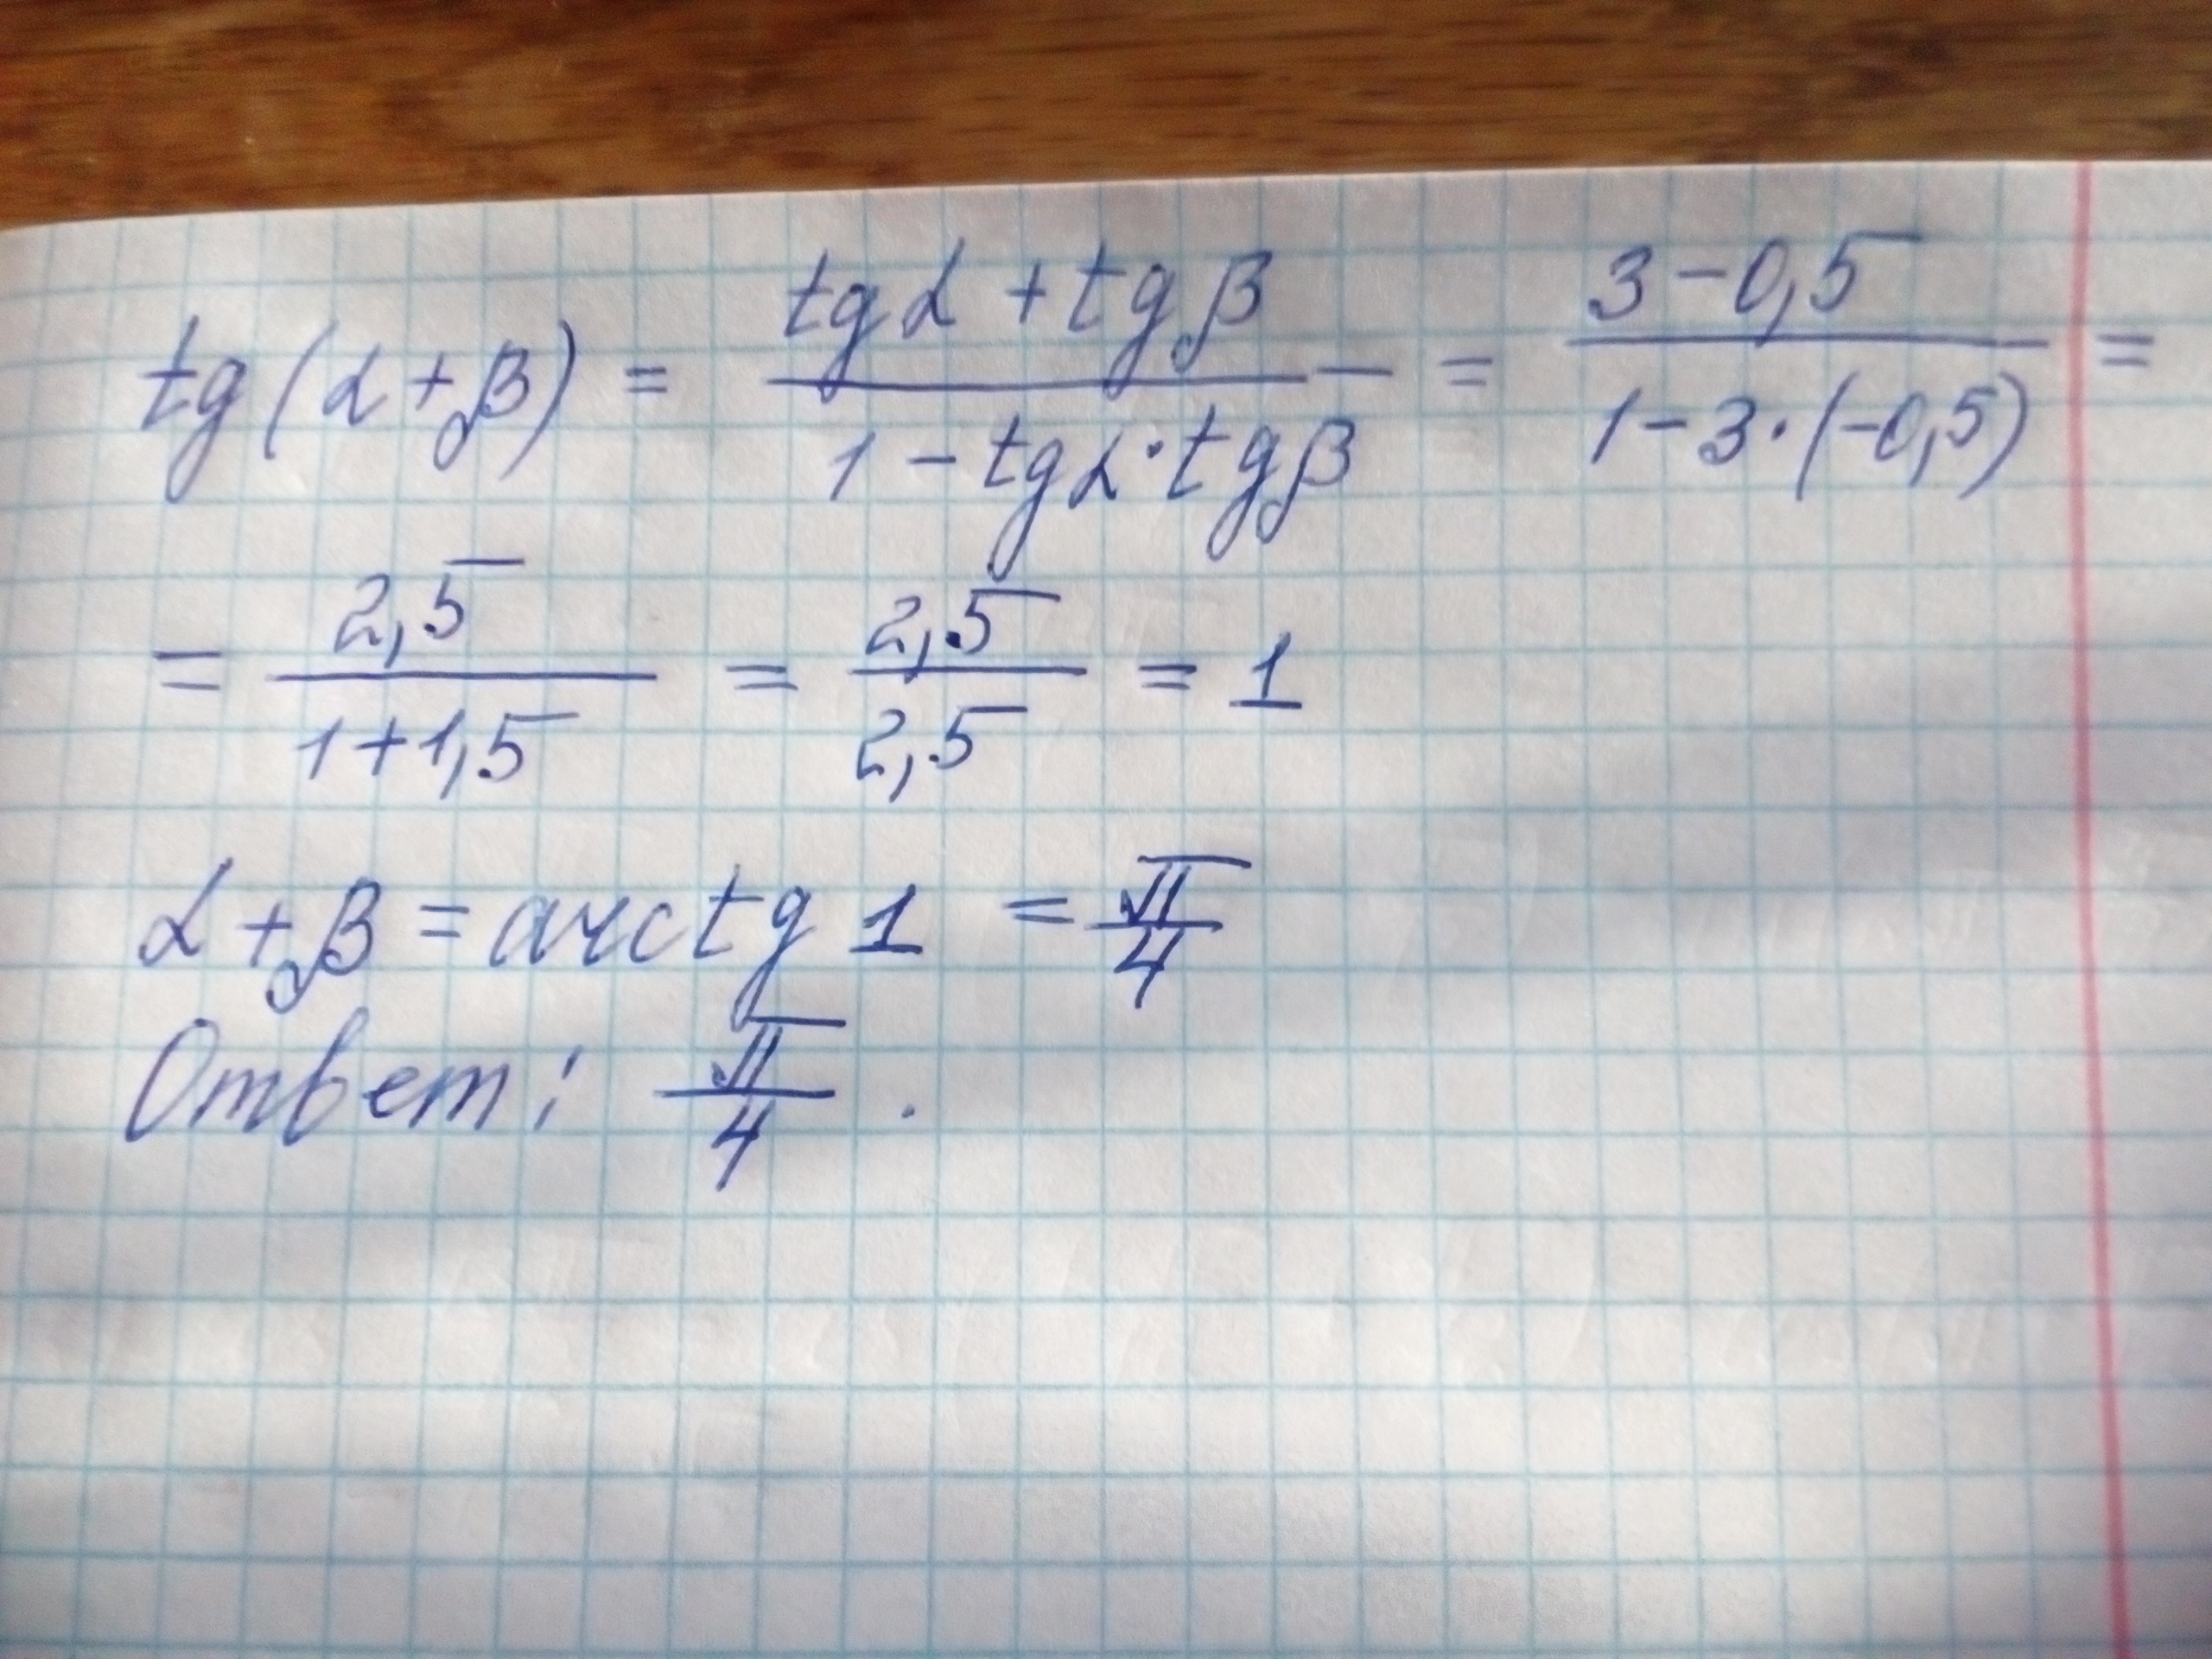 tg(α+β) = (tgα + tgβ)/(1 - tgα·tgβ) = (3 - 0,5)/(1 - 3·(-0,5)) =
= 2,5/(1+1,5) = 2,5/2,5 = 1
α+β = arctg 1 = π/4
Ответ: π/4 .